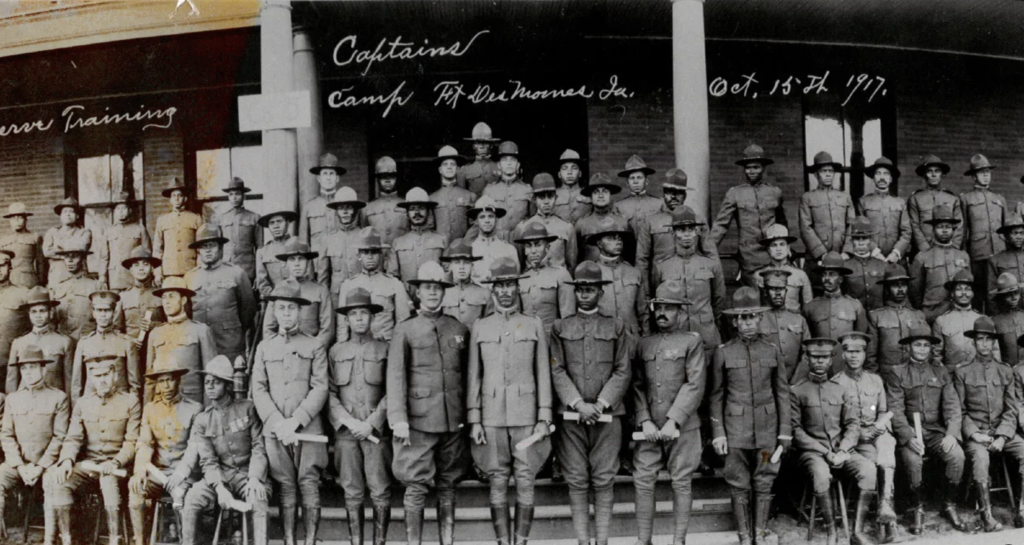 Captains
erve Training Camp Ft Des Moines Ia. Oct. 15th 1917.